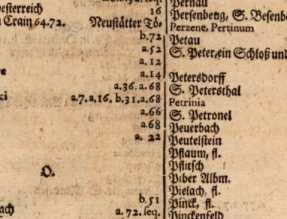 esterreich
n Crain 64.72.
16
Neustätter To⸗
b.72
a.52
a.12
a.14
a.36. a.68
a.7. a.16. b.31. a.68
a.66
a.68
a. 22
O.
b.51
a.72. seq.
Pernau
Persenberg, S. Besenb
Perzene, Pertinum
Petau
S. Peter, ein Schloß und
Petersdorff
S. Petersthal
Petrinia
S. Petronel
Peuerbach
Peutelstein
Pflaum, fl.
Pflitsch
Piber Albm.
Pielach, fl.
Pinck, fl.
Pinckenfeld